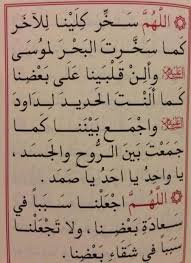 اللَّهُمَّ سَخِّر كِلَيْنا لِلآخَر
كما سَخَّرتَ البَحْرَ لموسَى
وأَلِنْ قَلْبَينا عَلى بَعْضِنا
كما أَلَنْتَ الحَديدَ لِداود
واجْمَع بَيْنَنا كَما
جَمَعْتَ بَينَ الرُّوح والجَسد،
يا واحِدُ يا اَحَدُ يا صَمَد.
اللَّهُمَّ اجْعَلْنا سَبَباً في
سَعادَةِ بَعضِنا، ولا تَجْعَلْنا
سَبَباً في شَقاءِ بَعْضِنا.